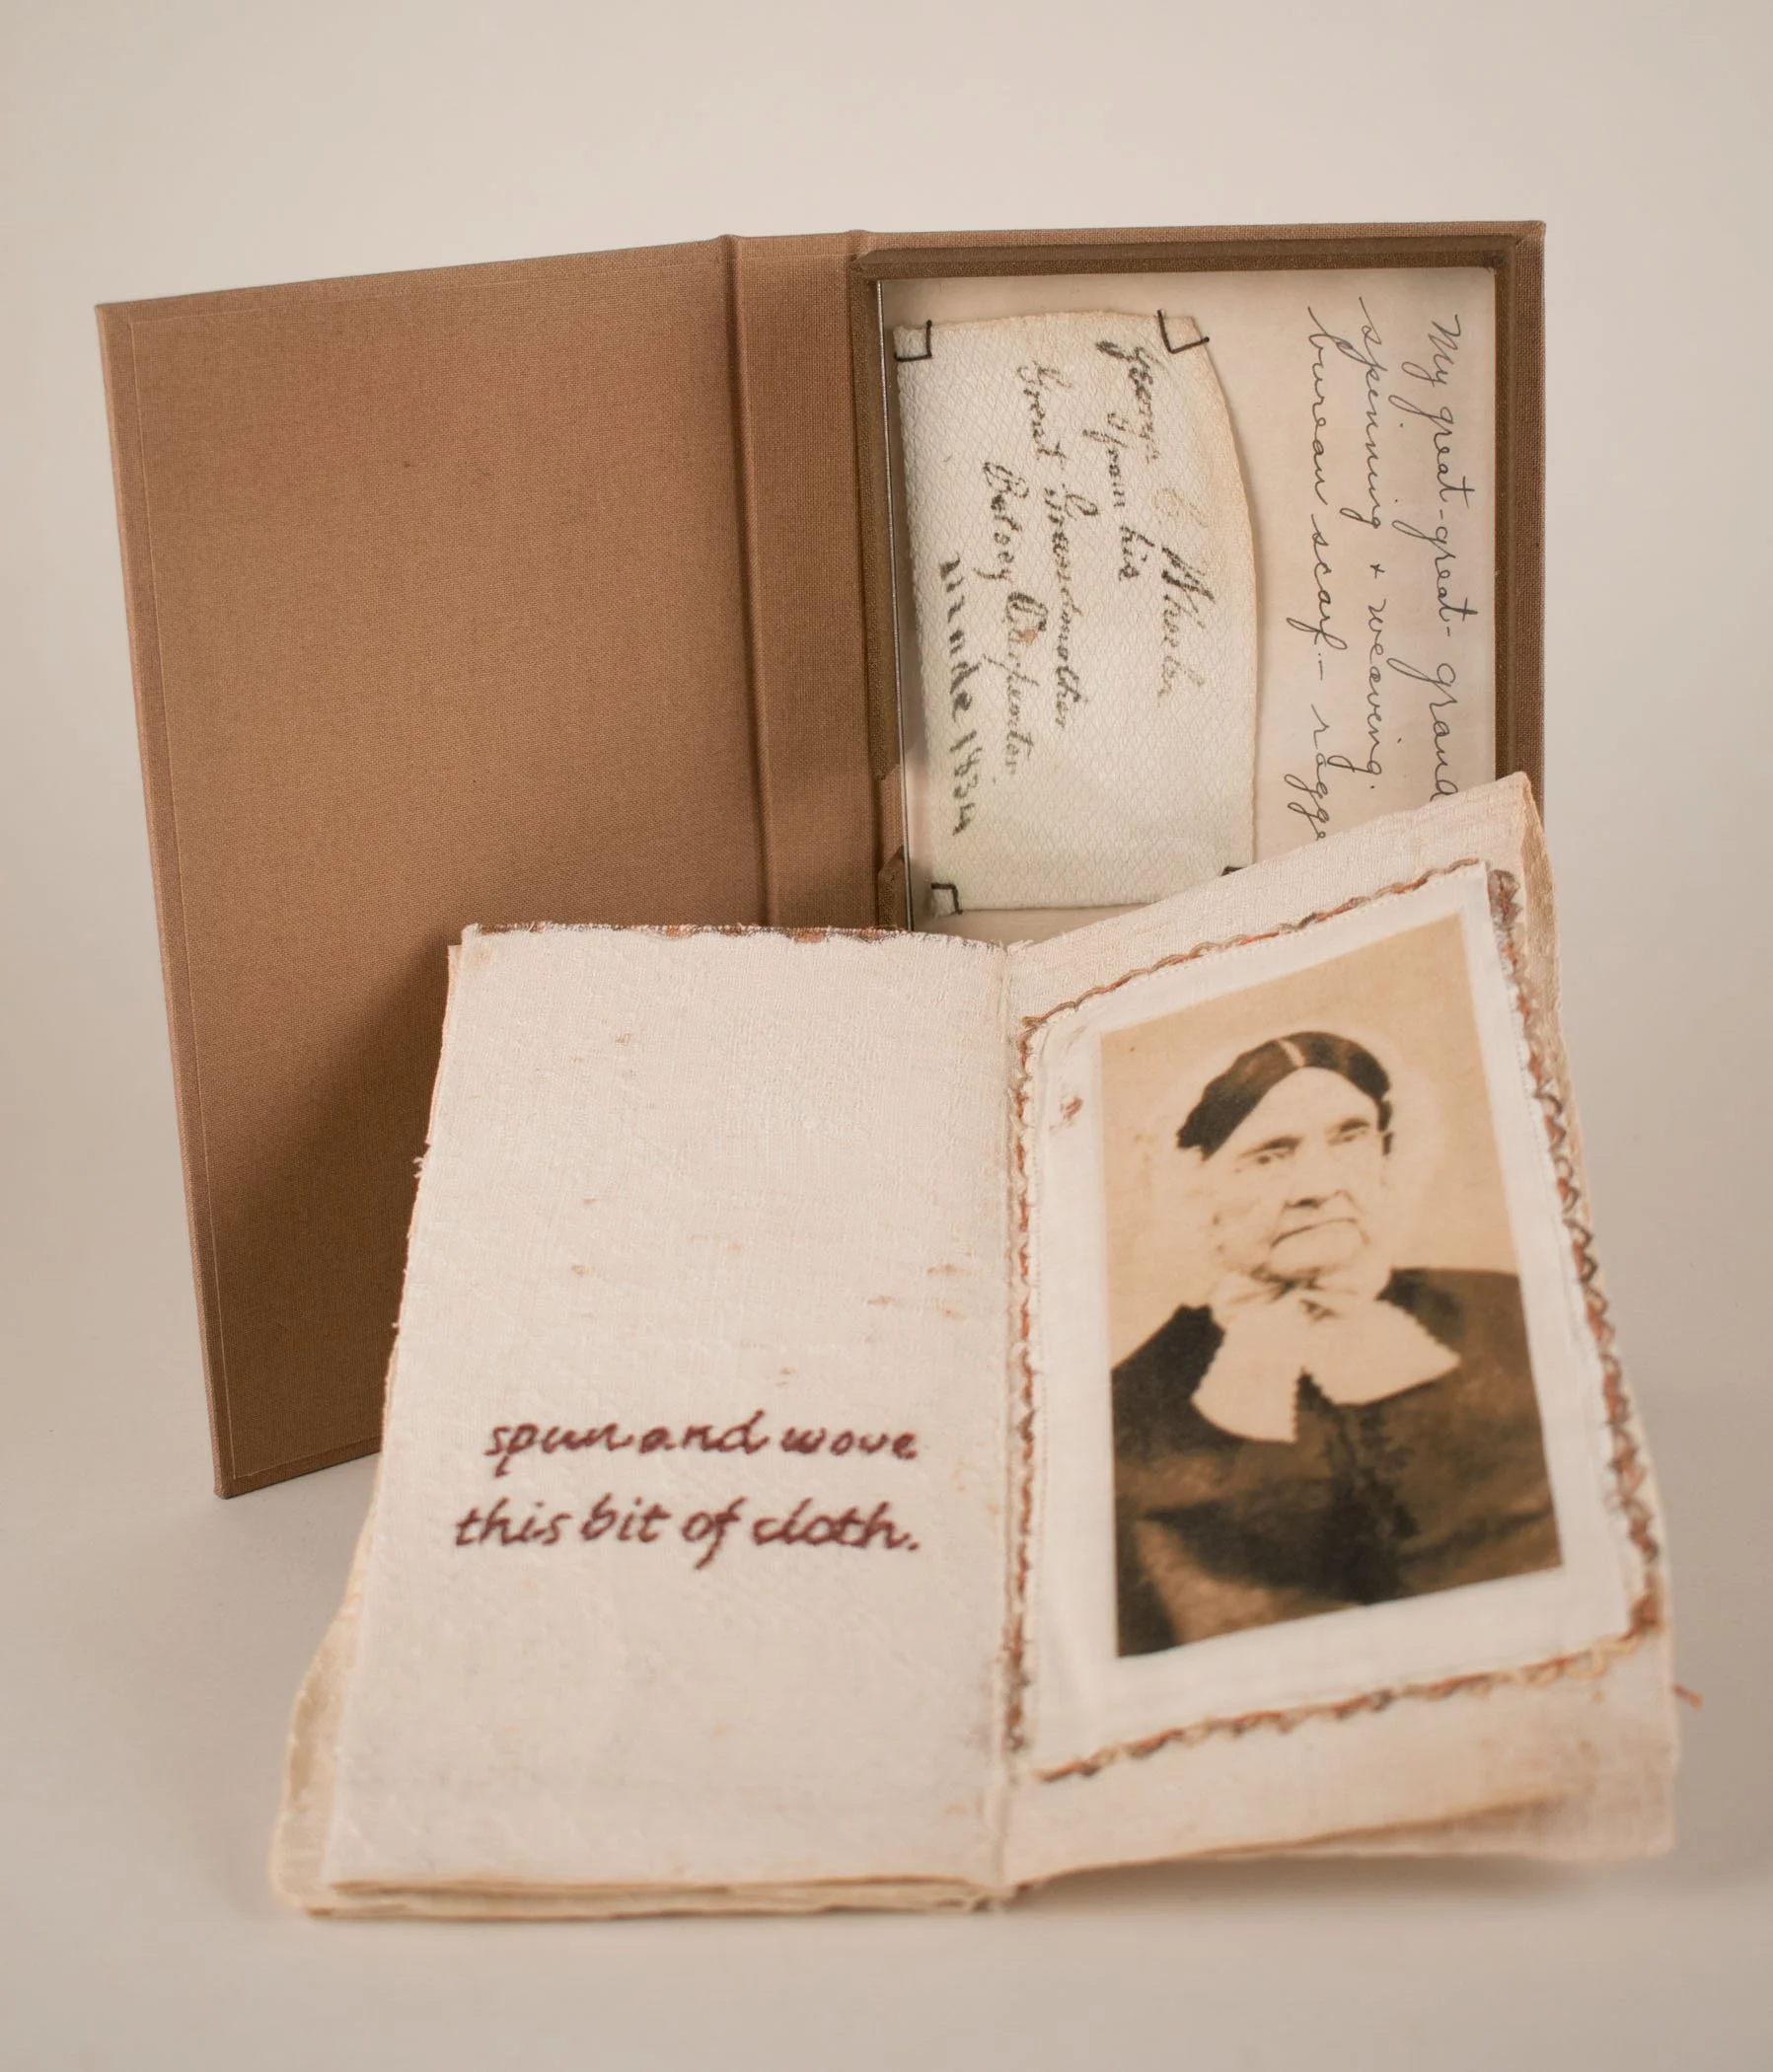 My great-great-grand
spinning + weaving.
bureau scarf - ragge
George C Wheeler
from his
Great Grandmother
Betsey Carpenter.
Made 1834
spun and wove
this bit of cloth.